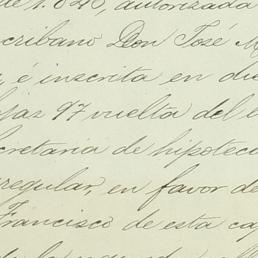 de 1.840, autorizada
scribano Don José M
é inscrita en di
jas 97 vuelta del
cretaria de hipotec
regular, en favor de
Francisco de esta ca